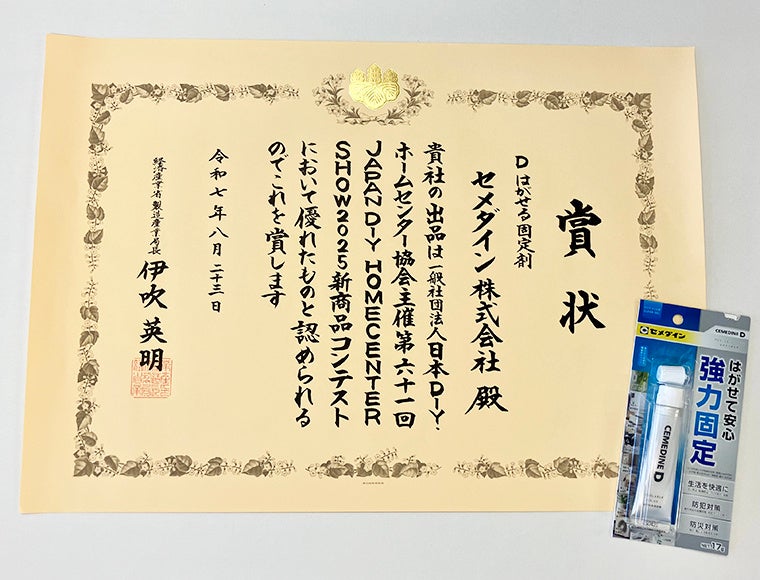 賞状
D はがせる固定剤
セメダイン株式会社 殿
貴社の出品は一般社団法人日本DIY・
ホームセンター協会主催第六十一回
JAPAN DIY HOMECENTER
SHOW2025新商品コンテスト
において優れたものと認められる
のでこれを賞します
令和七年八月二十三日
経済産業省 製造産業局長
伊吹英明
セメダイン
CEMEDINE D
はがせて安心
強力固定
CEMEDINE D
生活を快適に
防犯対策
防災対策
NET.17g